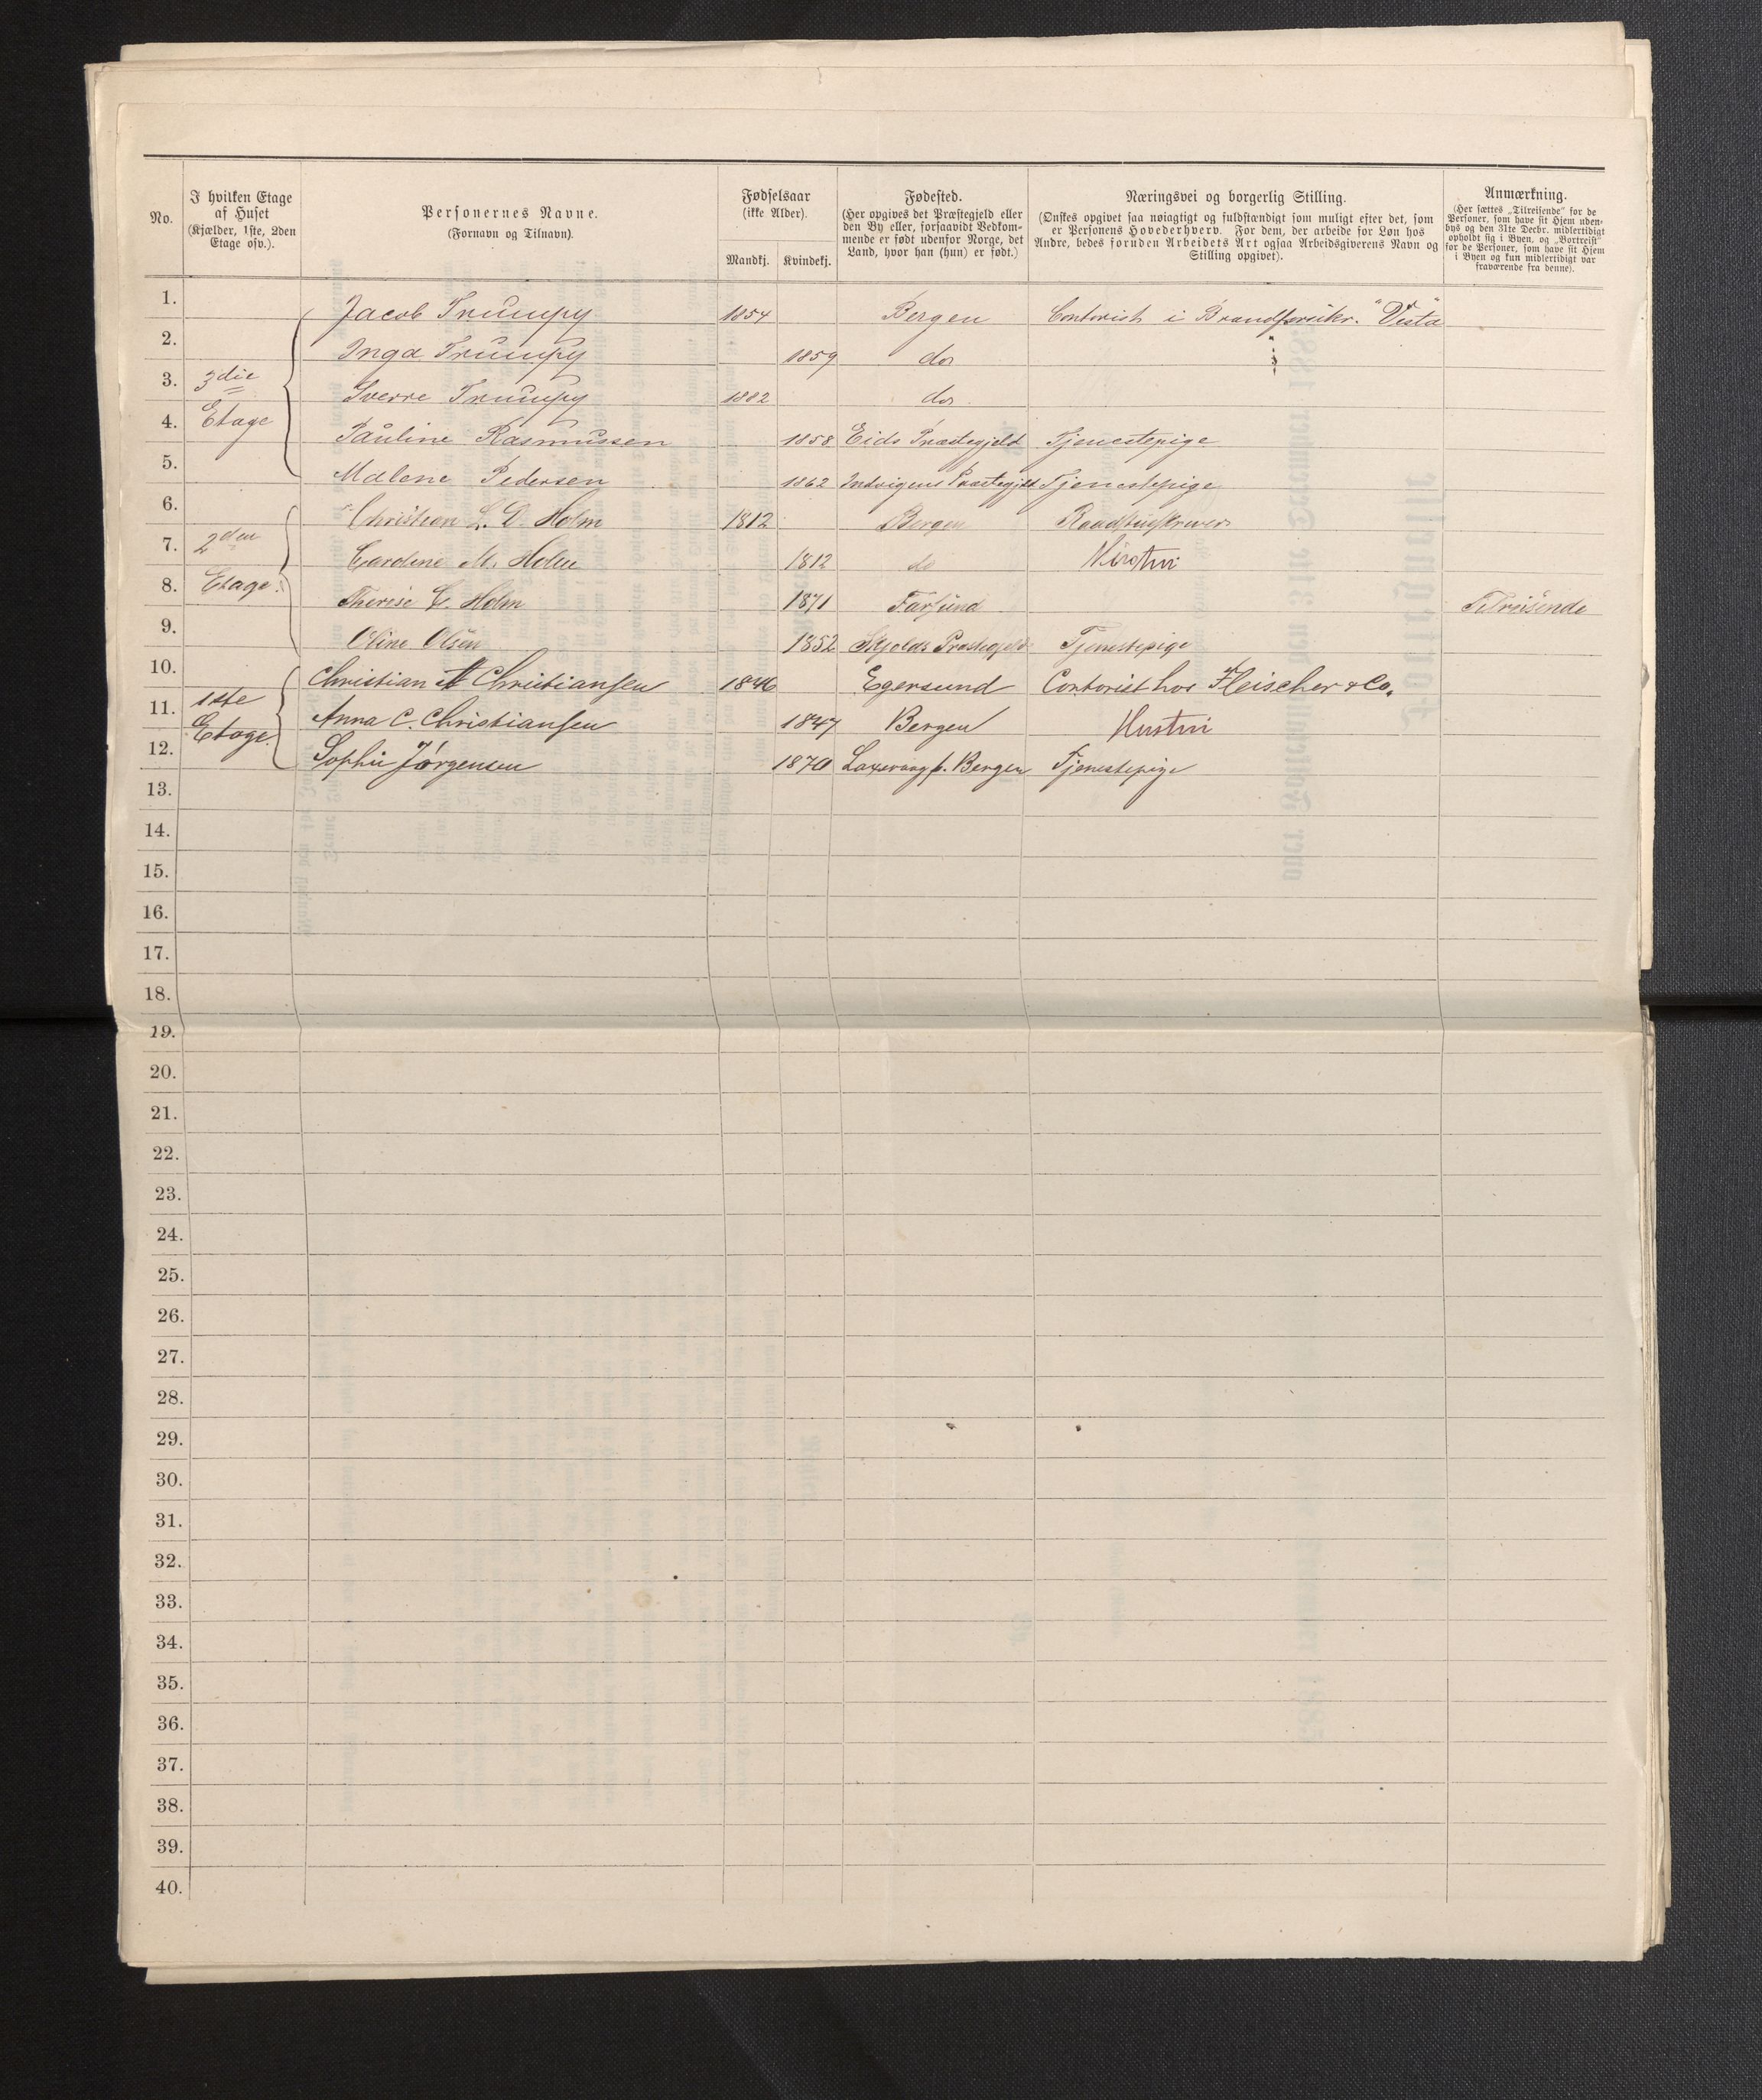 No.
I hvilken Etage af Huset (Kjælder, 1ste, 2den Etage osv.).
Personernes Navne. (Fornavn og Tilnavn).
Fødselsaar (ikke Alder).
Mandkj. Kvindekj.
Fødested. (Her opgives det Præstegjeld eller den By eller, forsaavidt Vedkommende er født udenfor Norge, det Land, hvor han (hun) er født.)
Næringsvei og borgerlig Stilling. (Ønskes opgivet saa nøiagtigt og fuldstændigt som muligt efter det, som er Personens Hovederhverv. For dem, der arbeide for Løn hos Andre, bedes foruden Arbeidets Art ogsaa Arbeidsgiverens Navn og Stilling opgivet).
Anmærkning. (Her sættes „Tilreisende" for de Personer, som have sit Hjem udenbys og den 31te Decbr. midlertidigt opholdt sig i Byen, og „Bortreist" for de Personer, som have sit Hjem i Byen og kun midlertidigt var fraværende fra denne).
1. Jacob Trumpy 1854 Bergen Contorist i Brandforsikr. "Vesta"
2. Inga Trumpy 1859 do
3. 3die Sverre Trumpy 1882 do
4. Etage Pauline Rasmussen 1858 Eids Præstegjeld Tjenestepige
5. Malene Pedersen 1862 Indvigens Præstegjeld Tjenestepige
6. Christian L. D. Holm 1812 Bergen Raadstuskriver
7. 2den Caroline M. Holm 1812 do Hustru
8. Etage. Therese C. Holm 1871 Farsund Tilreisende
9. Oline Olsen 1852 Skjolds Præstegjeld Tjenestepige
10. Christian Christiansen 1846 Egersund Contorist hos Fleischer & Co.
11. 1ste Anna C. Christiansen 1847 Bergen Hustru
12. Etage. Sophie Jørgensen 1870 Laxevaag p. Bergen Tjenestepige
13.
14.
15.
16.
17.
18.
19.
20.
21.
22.
23.
24.
25.
26.
27.
28.
29.
30.
31.
32.
33.
34.
35.
36.
37.
38.
39.
40.